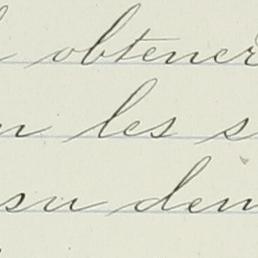 obtener
les s
su den